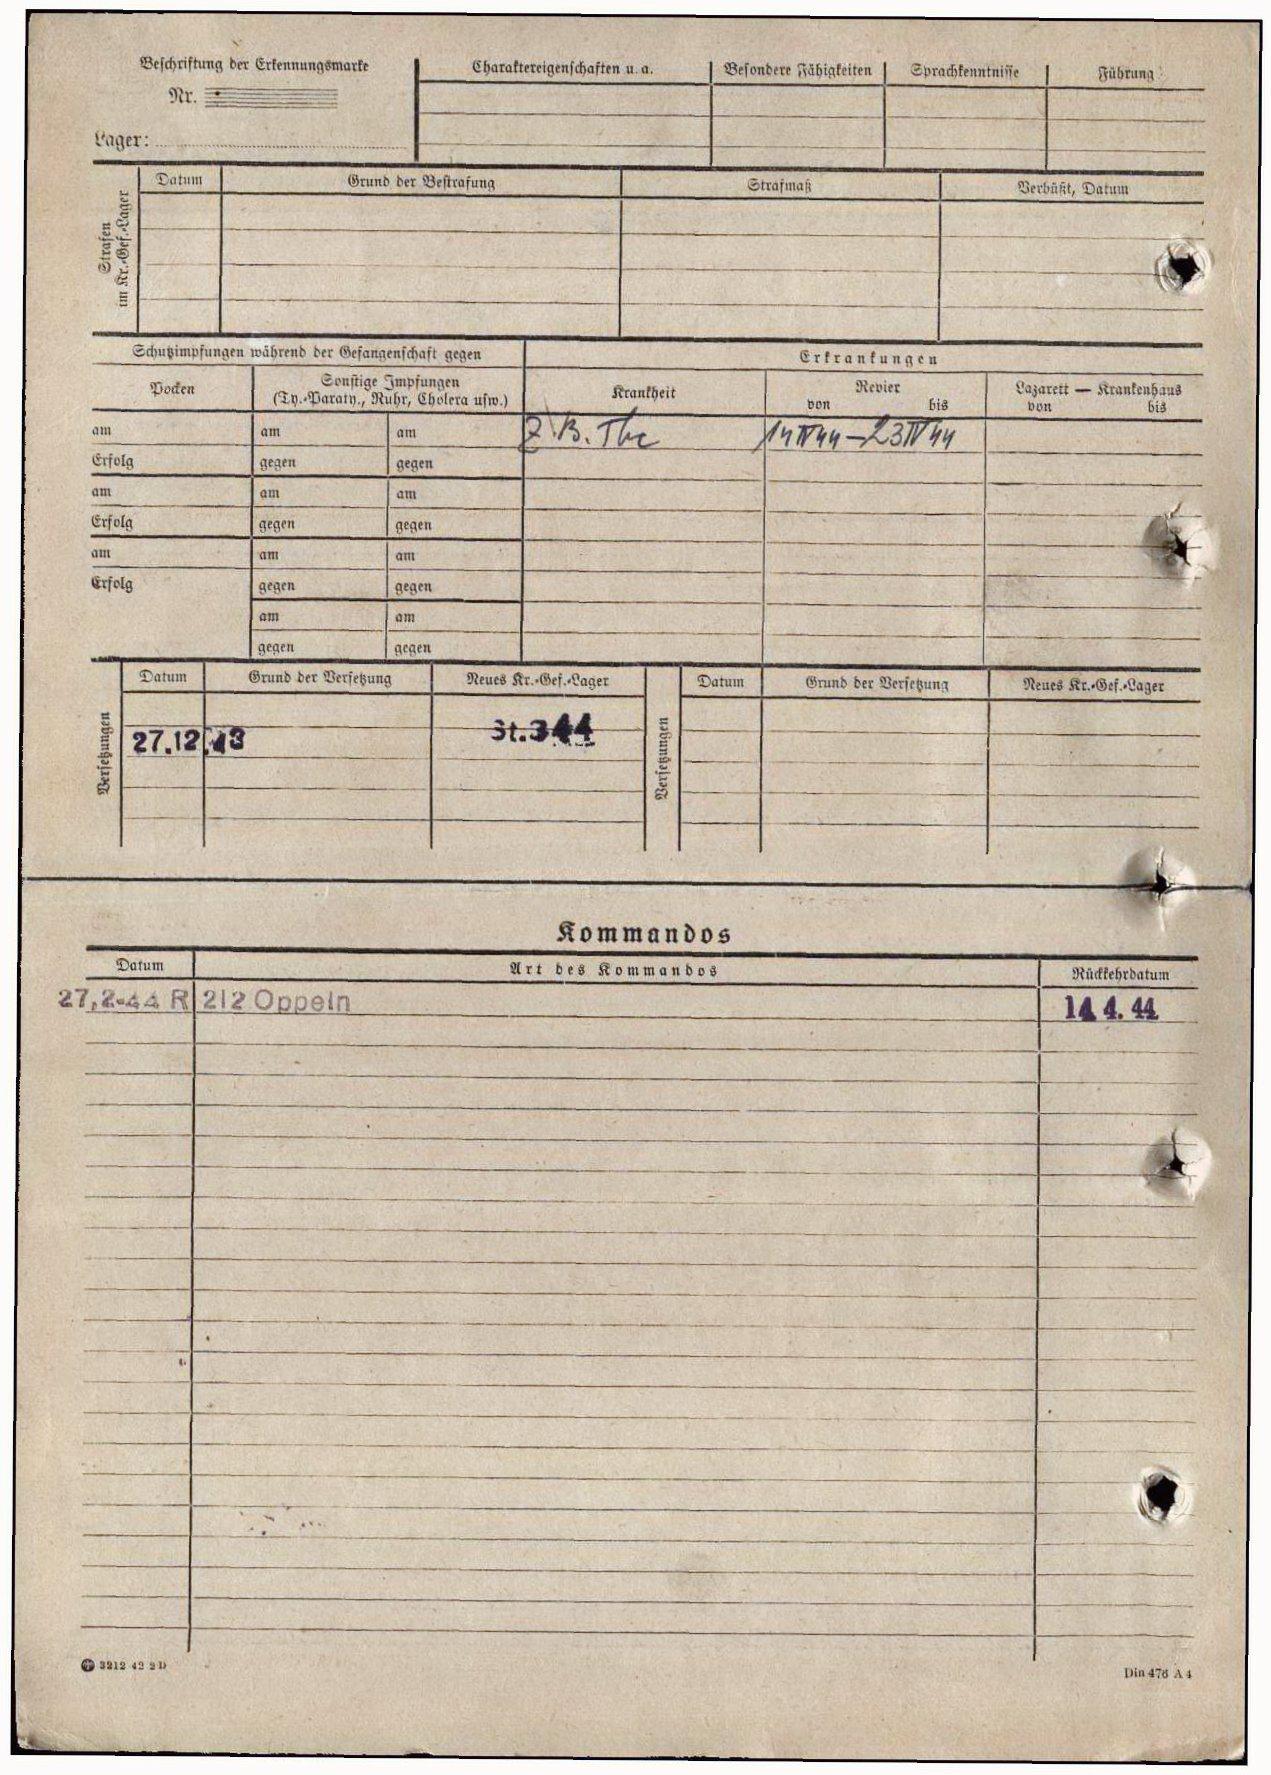 Beschriftung der Erkennungsmarke
Nr.
Lager:
Charaktereigenschaften u. a.
Besondere Fähigkeiten
Sprachkenntnisse
Führung
Strafen im Kr.-Gef.-Lager
Datum
Grund der Bestrafung
Strafmaß
Verbüßt, Datum
Schutzimpfungen während der Gefangenschaft gegen
Erkrankungen
Pocken
Sonstige Impfungen
(Ty.-Paraty., Ruhr, Cholera usw.)
Krankheit
Revier
von bis
Lazarett — Krankenhaus
von bis
am am am
Z. B. Tbc 14 IV 44 – 23 IV 44
Erfolg gegen gegen
am am am
Erfolg gegen gegen
am am am
Erfolg gegen gegen
am am
gegen gegen
Versetzungen
Datum
Grund der Versetzung
Neues Kr.-Gef.-Lager
27.12.43
St. 344
Versetzungen
Datum
Grund der Versetzung
Neues Kr.-Gef.-Lager
Kommandos
Datum
Art des Kommandos
Rückkehrdatum
27,2-44 R 212 Oppeln 14.4.44
3212 42 2 D
Din 476 A 4